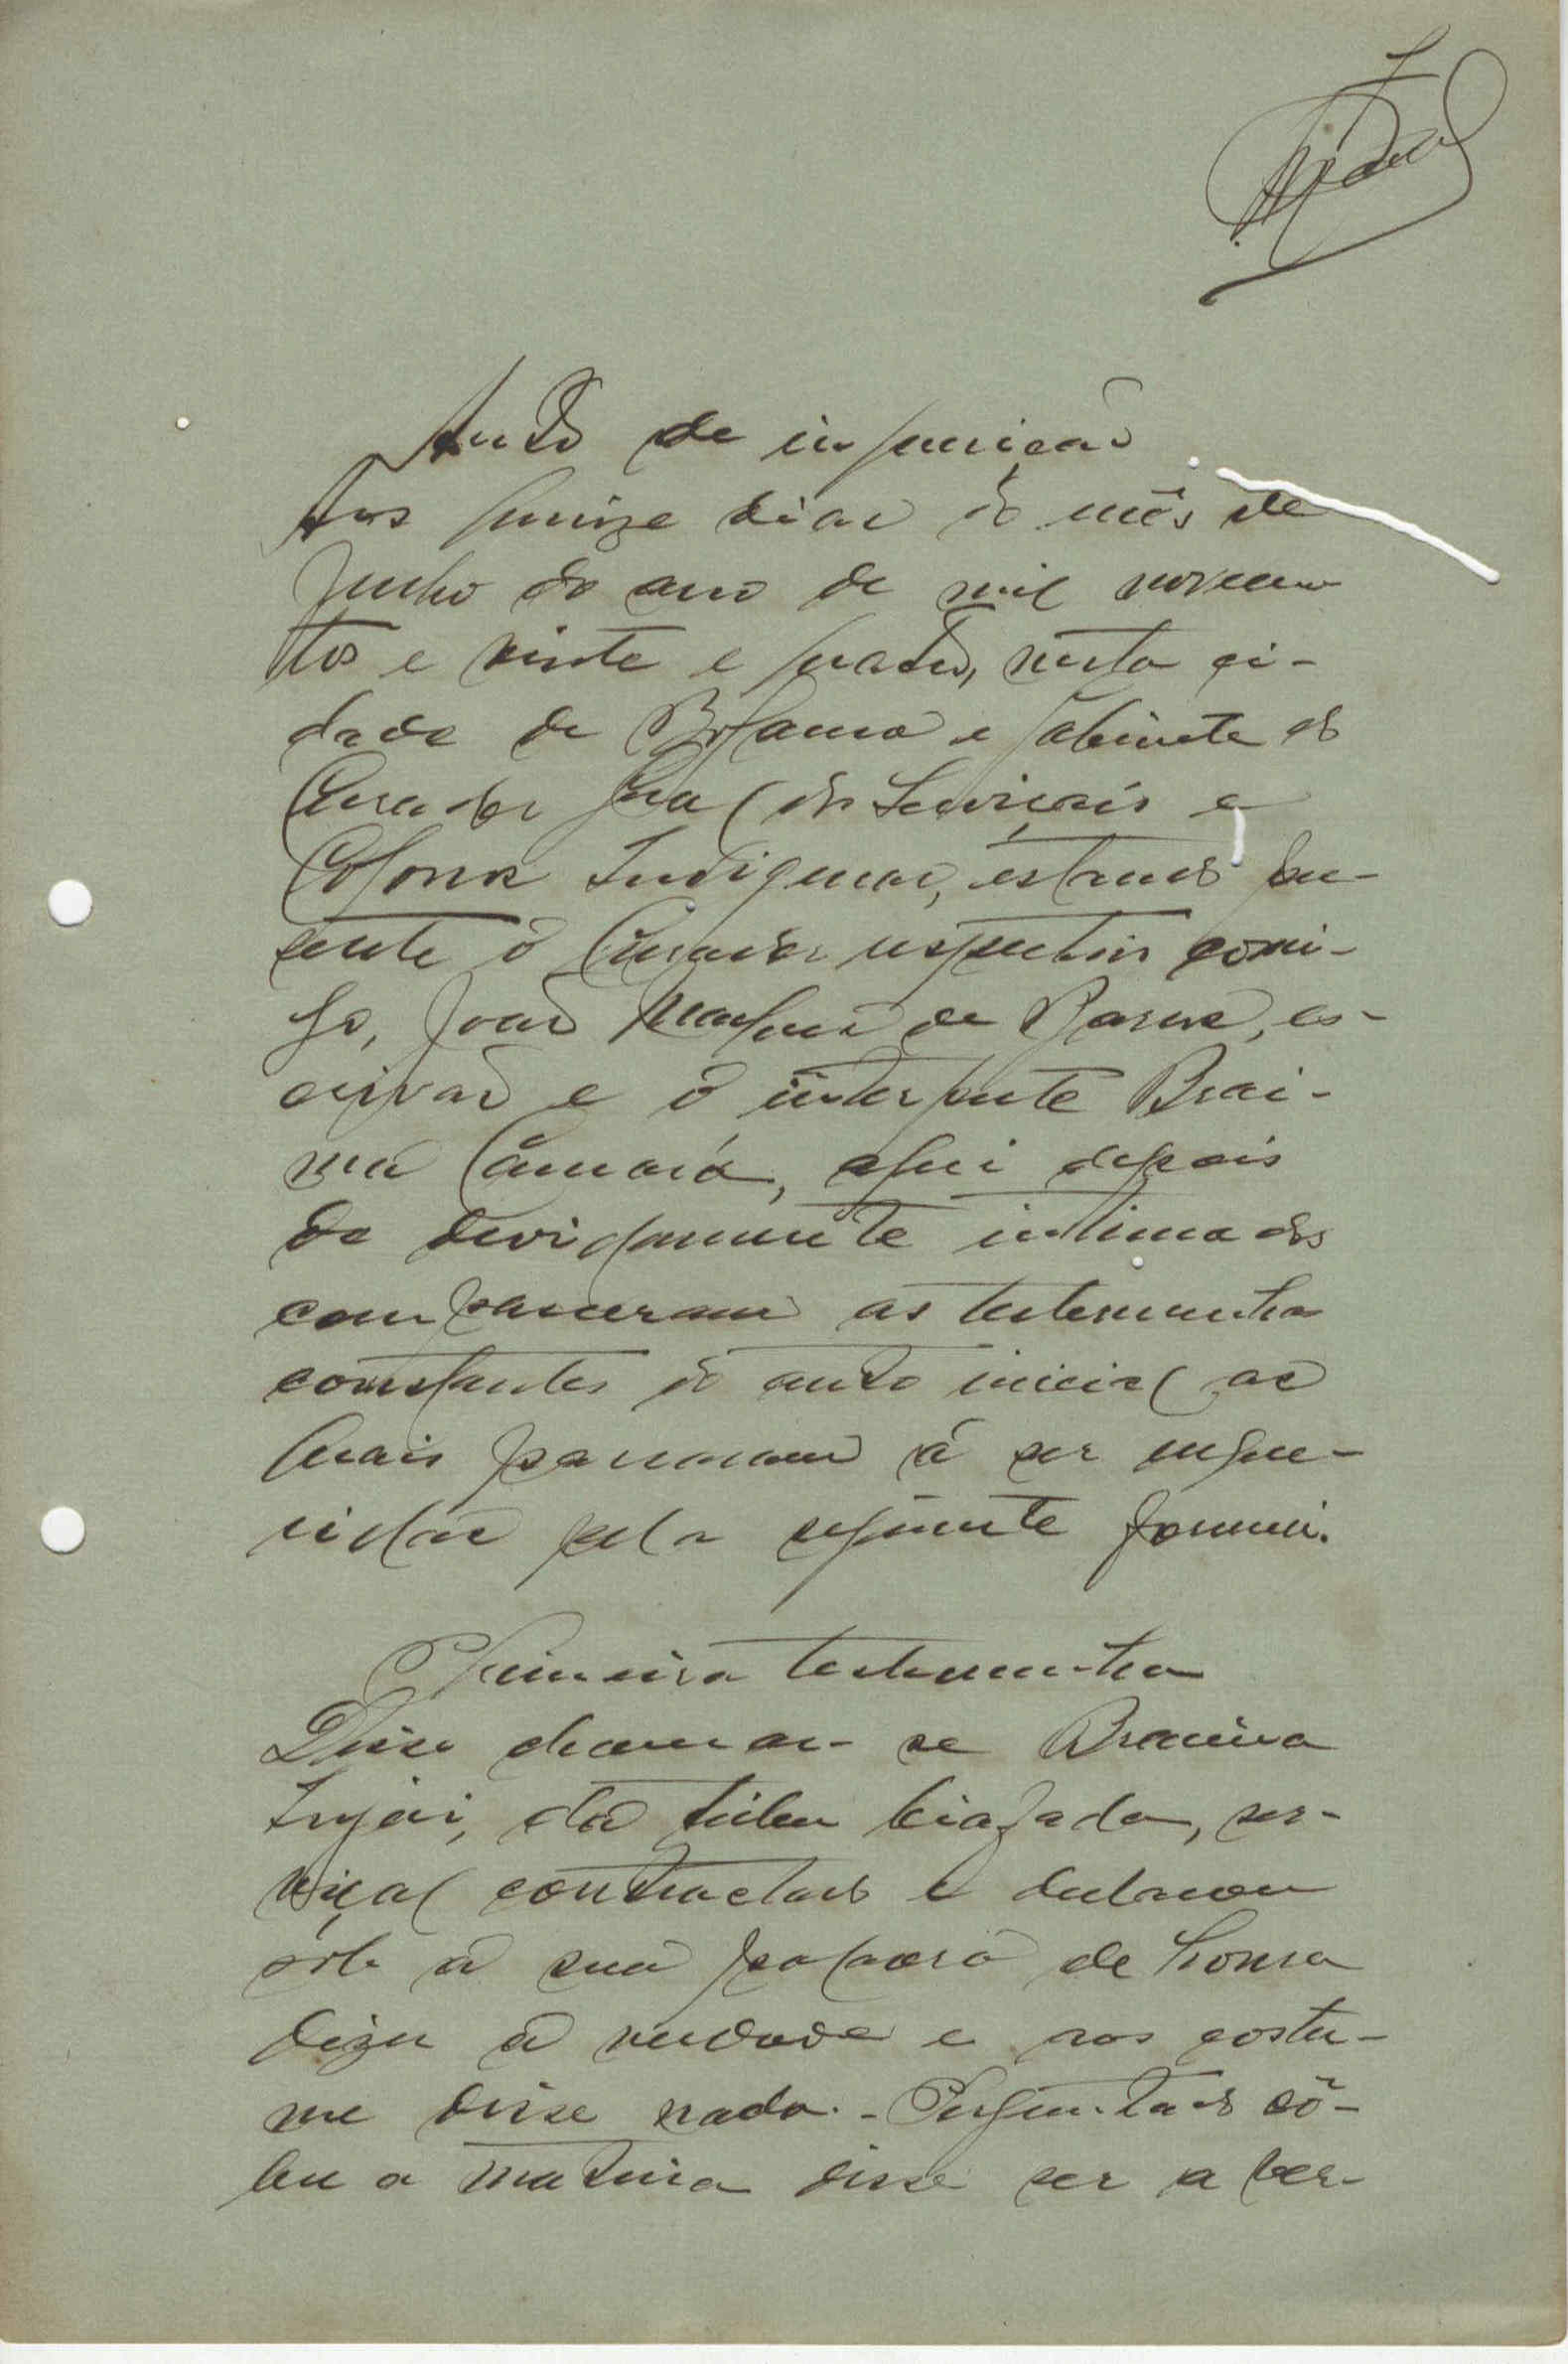 Auto de inquirição
Aos quinze dias do mês de
Junho do ano de mil novecen
tos e vinte e quatro, nesta ci-
dade de Bolama e gabinete do
Curador Geral dos Serviçais e
Colonos Indigenas, estando pre-
sente o Curador respectivo comi-
go, João de Barros, es-
crivão e o interprete Brai-
ma Câmará, aqui depois
de devidamente intimados
compareceram as testemunhas
constantes do auto inicial as
quais passaram á ser inque-
ridas pela seguinte forma.
Primeira testemunha
Disse chamar-se Braima
Injai, da tribu biafada, ser-
viçal contractado e declarou
sob a sua palavra de honra
dizer a verdade e aos costu-
me disse nada. - Perguntado sô-
bre a materia disse ser a ver-